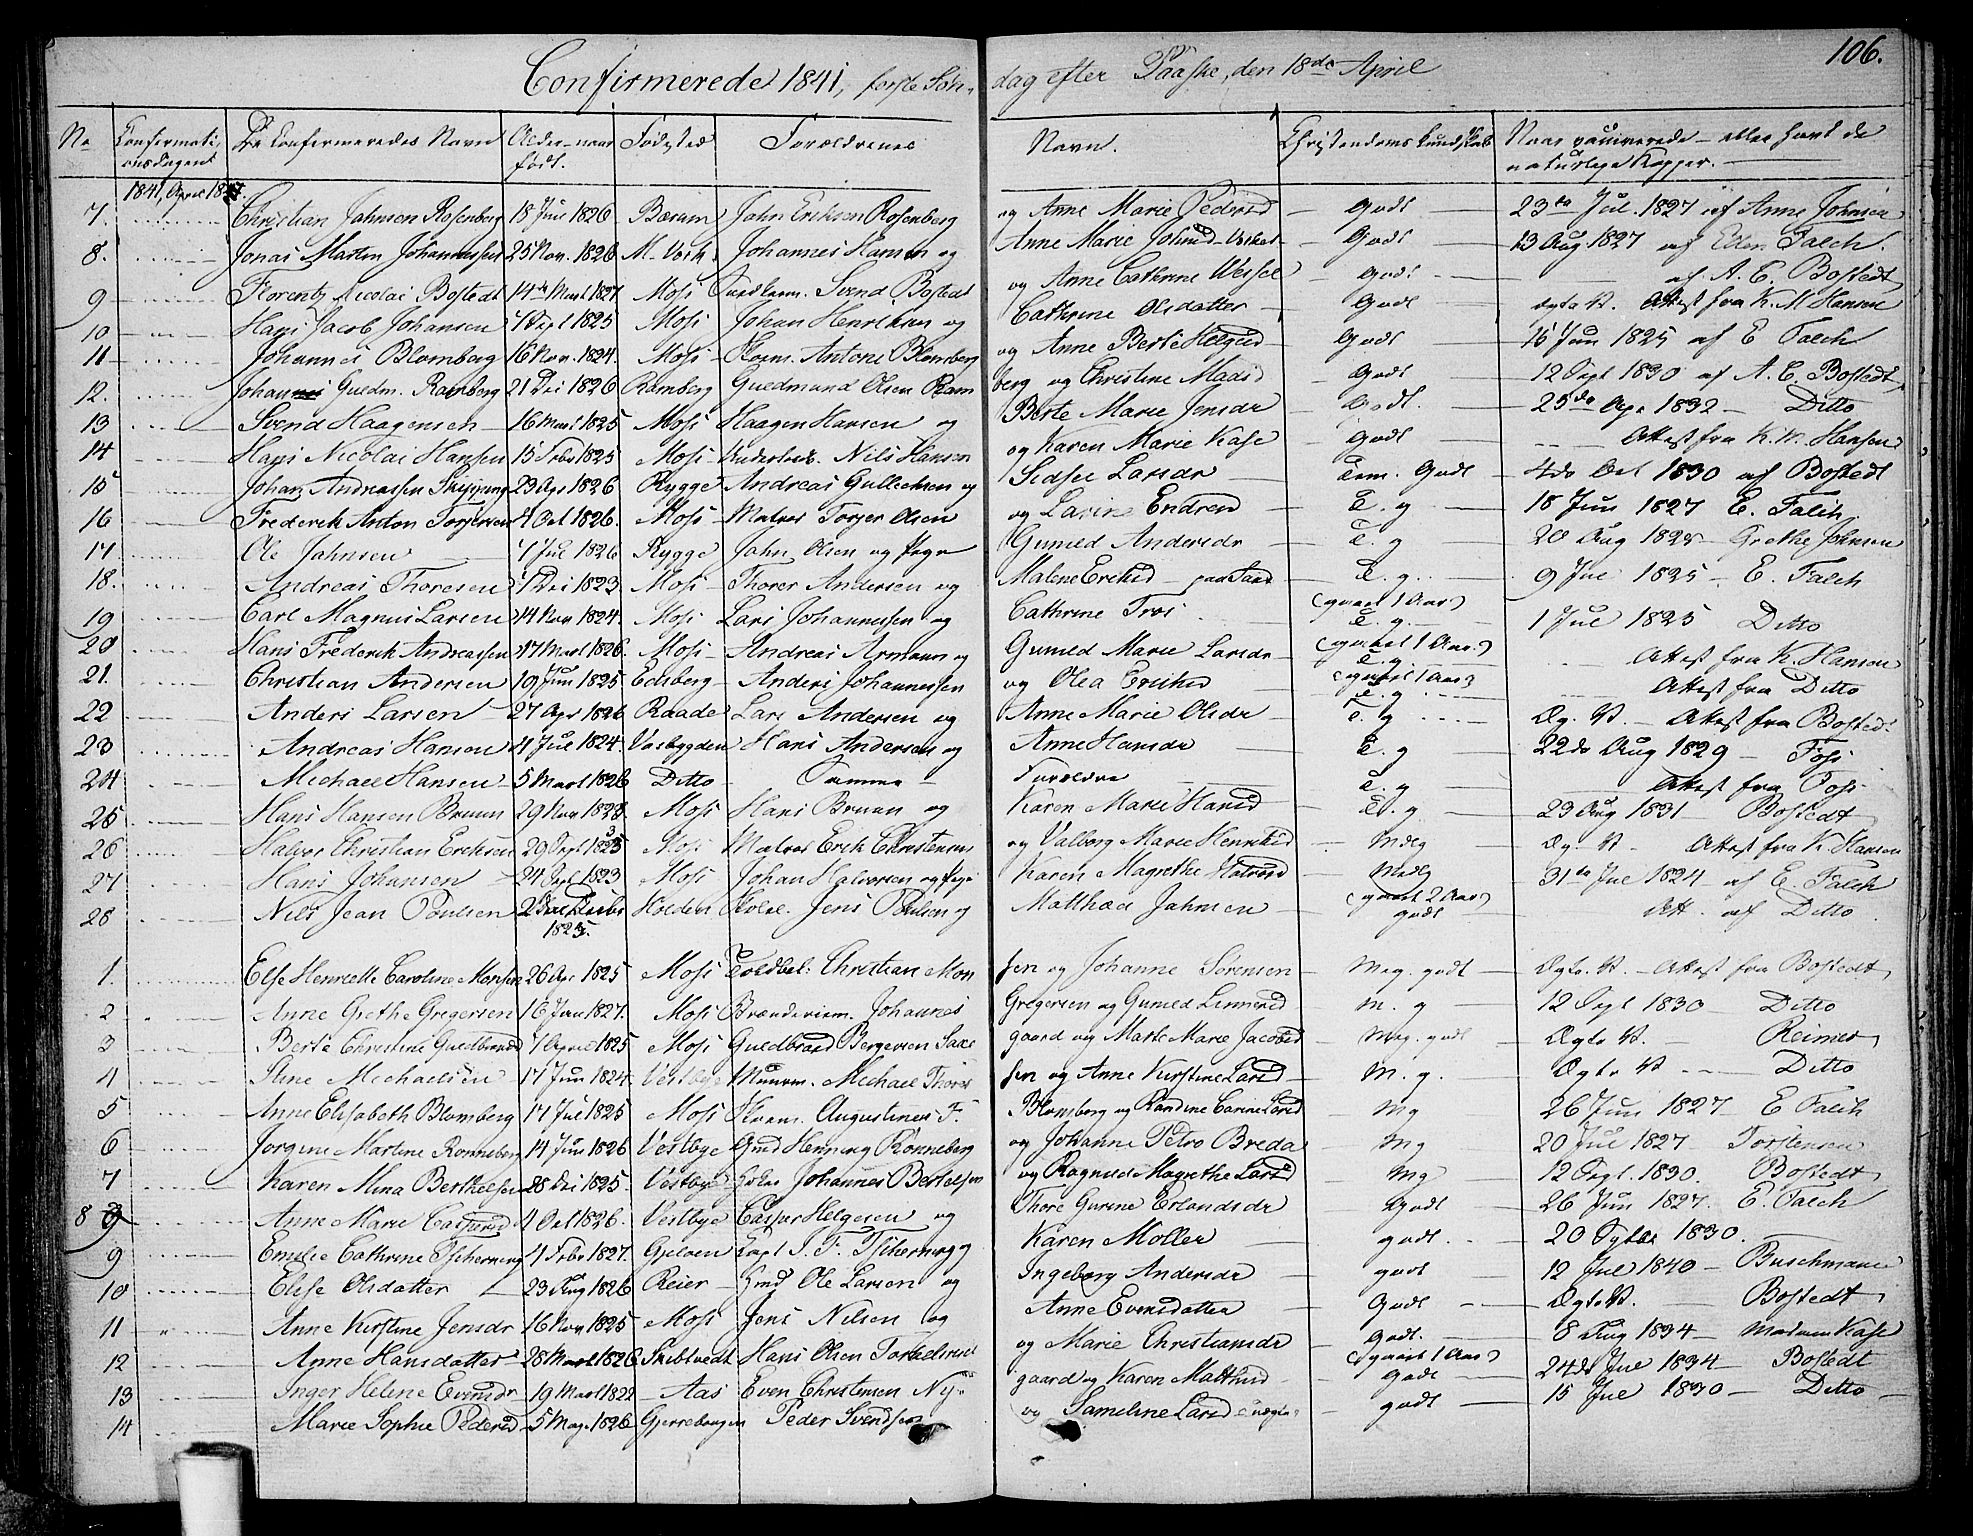 106.
Confirmerede 1841, første Søn- dag efter Paaske, den 18de April
No Confirmationsdagen De Confirmeredes Navn Alder - naar født. Fødested Forældrenes Navn. Christendoms Kundskab Naar vaccinerede - eller havt de naturlige Kopper.
1841, April 18
7. Christian Jahnsen Rosenberg 18 Juni 1826 Bærum John Eriksen Rosenberg og Anne Marie Pedersd - Godt - 23de Jul. 1827 af Anne Johnsen
8. Jonas Martin Johannessen 25 Nov. 1826 M. Verk. Johannes Hansen og Anne Marie Johnsd - Godt - 13 Aug 1827 af Eden Falch.
9 Florentz Nicolai Bostedt 14de Mart 1827 Moss Svend Bostedt og Anne Cathrine Wessel godt - af A. E. Bostedt
10 Hans Jacob Johansen 7 Sept 1825 Moss Johan Henriksen og Cathrine Olsdatter - Godt Attest fra K. M Hansen
11 Johannes Blomberg 16 Nov. 1824. Moss - Skom. Antoni Blomsberg og Anne Berte Helgesd - Godt - 16 Jun 1825 af E Falch
12. Johannes Guldm. Ramberg 21 Dec 1826 Ramberg Guldmund Olsen Ramberg og Christine Madsd - Godt - 12 Sept 1830 af A. E. Bostedt
13 Svend Haagensen 16 Mart 1825 Moss Haagen Hansen og Berte Marie Jensdr - Godt. - 25de Apr 1832 - Ditto
14 Hans Nicolai Hansen 15 Febr 1825 Moss - Nils Hansen og Karen Marie Kase - Godt - Attest fra K. M. Hansen
15 Johan Andreassen 23 Apr 1826 Rygge Andreas Gullichsen og Sidse Larsdr - Tem. Godt - 4de Oct 1830 af Bostedt
16 Frederik Anton Torgersen 4 Oct 1826. Moss - Matros Torger Olsen og Larine Endresd - T. g - 18 Jun 1827 E. Falch
17 Ole Jahnsen 7 Jul 1826 Rygge John Olsen og Pige Gunild Andersdr - T. g - 20 Aug 1828 - Grethe Johnsen
18. Andreas Thoresen 1 Dec 1823 Moss - Thorer Andersen og Malene Ericksd - T. g. - 9 Jul 1825 - E. Falch
19 Carl Magnus Larsen 14 Nov 1824. Moss Lars Johannessen og Cathrine Tros (gaaet 1 Aar) T. g. 1 Jul 1825 Ditto
20 Hans Frederik Andreassen 17 Mart 1826. Moss - Andreas Armann og Gunild Marie Larsdr - (gaaet 1 Aar) T. g. Attest fra K. Hansen
21. Christian Andersen 19 Jun 1825 Edsberg - Anders Johannessen og Olea Ericksd (gaaet 1 Aar) T. g - Attest fra Ditto
22 Anders Larsen 27 Apr 1826 Raade Lars Andersen og Anne Marie Olsdr - T. g - Dg. V. - Attest fra Bostedt
23 Andreas Hansen 4 Jul 1824. Vosbygden Hans Andersen og Anne Hansdr - T. g - 22de Aug 1829 - Foss
24 Michael Hansen - 5 Mart 1826 Ditto - Samme - Forældre - T. g - Attest fra Foss
25 Hans Hansen Bruun 29 Nov 1823 Moss Hans Bruun og Karen Marie Hansd - T. g - 23 Aug 1831 - Bostedt
26 Halvor Christian Eriksen 29 Sept 1825 Moss Matros Erik Christensen og Valborg Marie Henriksd - Mdlg - Dg. V. - Attest fra K. Hansen
27 Hans Johansen - 24 Sept 1823 Moss Johan Halvorsen og Pige Karen Magrethe Halvorsd - Mdlg - 31de Jul 1824 - af E. Falch
28 Nils Jean Poulsen 2 1825. Holden Jens Poulsen og Matthea Jahnsen - (gaaet 2 Aar) godt - Att. af Ditto.
1. Else Henriette Caroline Monsen 26 Apr 1825 Moss Toldbet: Christian Monsen og Johanne Sørensen - Meg. godt - Dgto. V. - Attest fra Bostedt
2 Anne Grethe Gregersen 16 Jan 1827. Moss Brænderiem. Johannes Gregersen og Gunild Linnersd - M. g - 12 Sept 1830 - Ditto
3 Berte Christine Guldbrandsd 7 April 1825 Moss Guldbrand Bergersen Saxegaard og Marte Marie Jacobsd - Meg. godt - Dgto V. - Reimers
4 Stine Michaelsen - 17 Jun 1824. Vestbye Muurm. Michael Thoresen og Anne Kirstine Larsd - M. g. - Dgto V - Ditto
5 Anne Elisabeth Blomberg 17 Jul 1825 Moss Skom. Augustinus F. Blomsberg og Randine Carine Larsd - Mg - 26 Jun 1827 - E Falch
6 Jorgine Martine Ronneberg 14 Jun 1826 Vestbye Gmd Henning Ronneberg og Johanne Petro Breda - Mg - 20 Jul 1827 - Torstensen
7 Karen Mina Berthelsen 28 Dec 1825. Vestbye Johannes Bertelsen og Ragnild Magrethe Larsd - Mg - 12 Sept. 1830. Bostedt
8 Anne Marie Caspersd 4 Oct 1826. Vestbye Casper Helgesen og Thore Gurine Erlandsdr - Godt - 26 Jun 1827. E. Falch
9 Emilie Cathrine Tschierning 4 Febr 1827. Gjeløen Capt J. F. Tschierning og Karen Moller - godt. - 20 Sptbr 1830.
10 Elise Olsdatter - 23 Aug 1826 Reier - Gmd Ole Larsen og Ingeborg Andersdr - godt - 12 Jul 1840 - Buschmann
11 Anne Kirstine Jensdr 16 Nov 1825 Moss Jens Nilsen og Anne Evensdatter - Godt - Dgto V. - Bostedt
12 Anne Hansdatter 28 Mart 1826 Skibtvedt Hans Olsen og Marie Christiansdr - godt. (gaaet 1 Aar) 8 Aug 1834 - Madam Kase
13 Inger Helene Evensdr 19 Mart 1822 - Aas Even Christensen Nygaard og Karen Matthisd - Godt - 24de Jul 1834 - Bostedt
14 Marie Sophie Pedersd 5 Mag 1826 Gjerrebougen Peder Svendsen og Sameline Larsd - godt - 15 Jul 1830 - Ditto